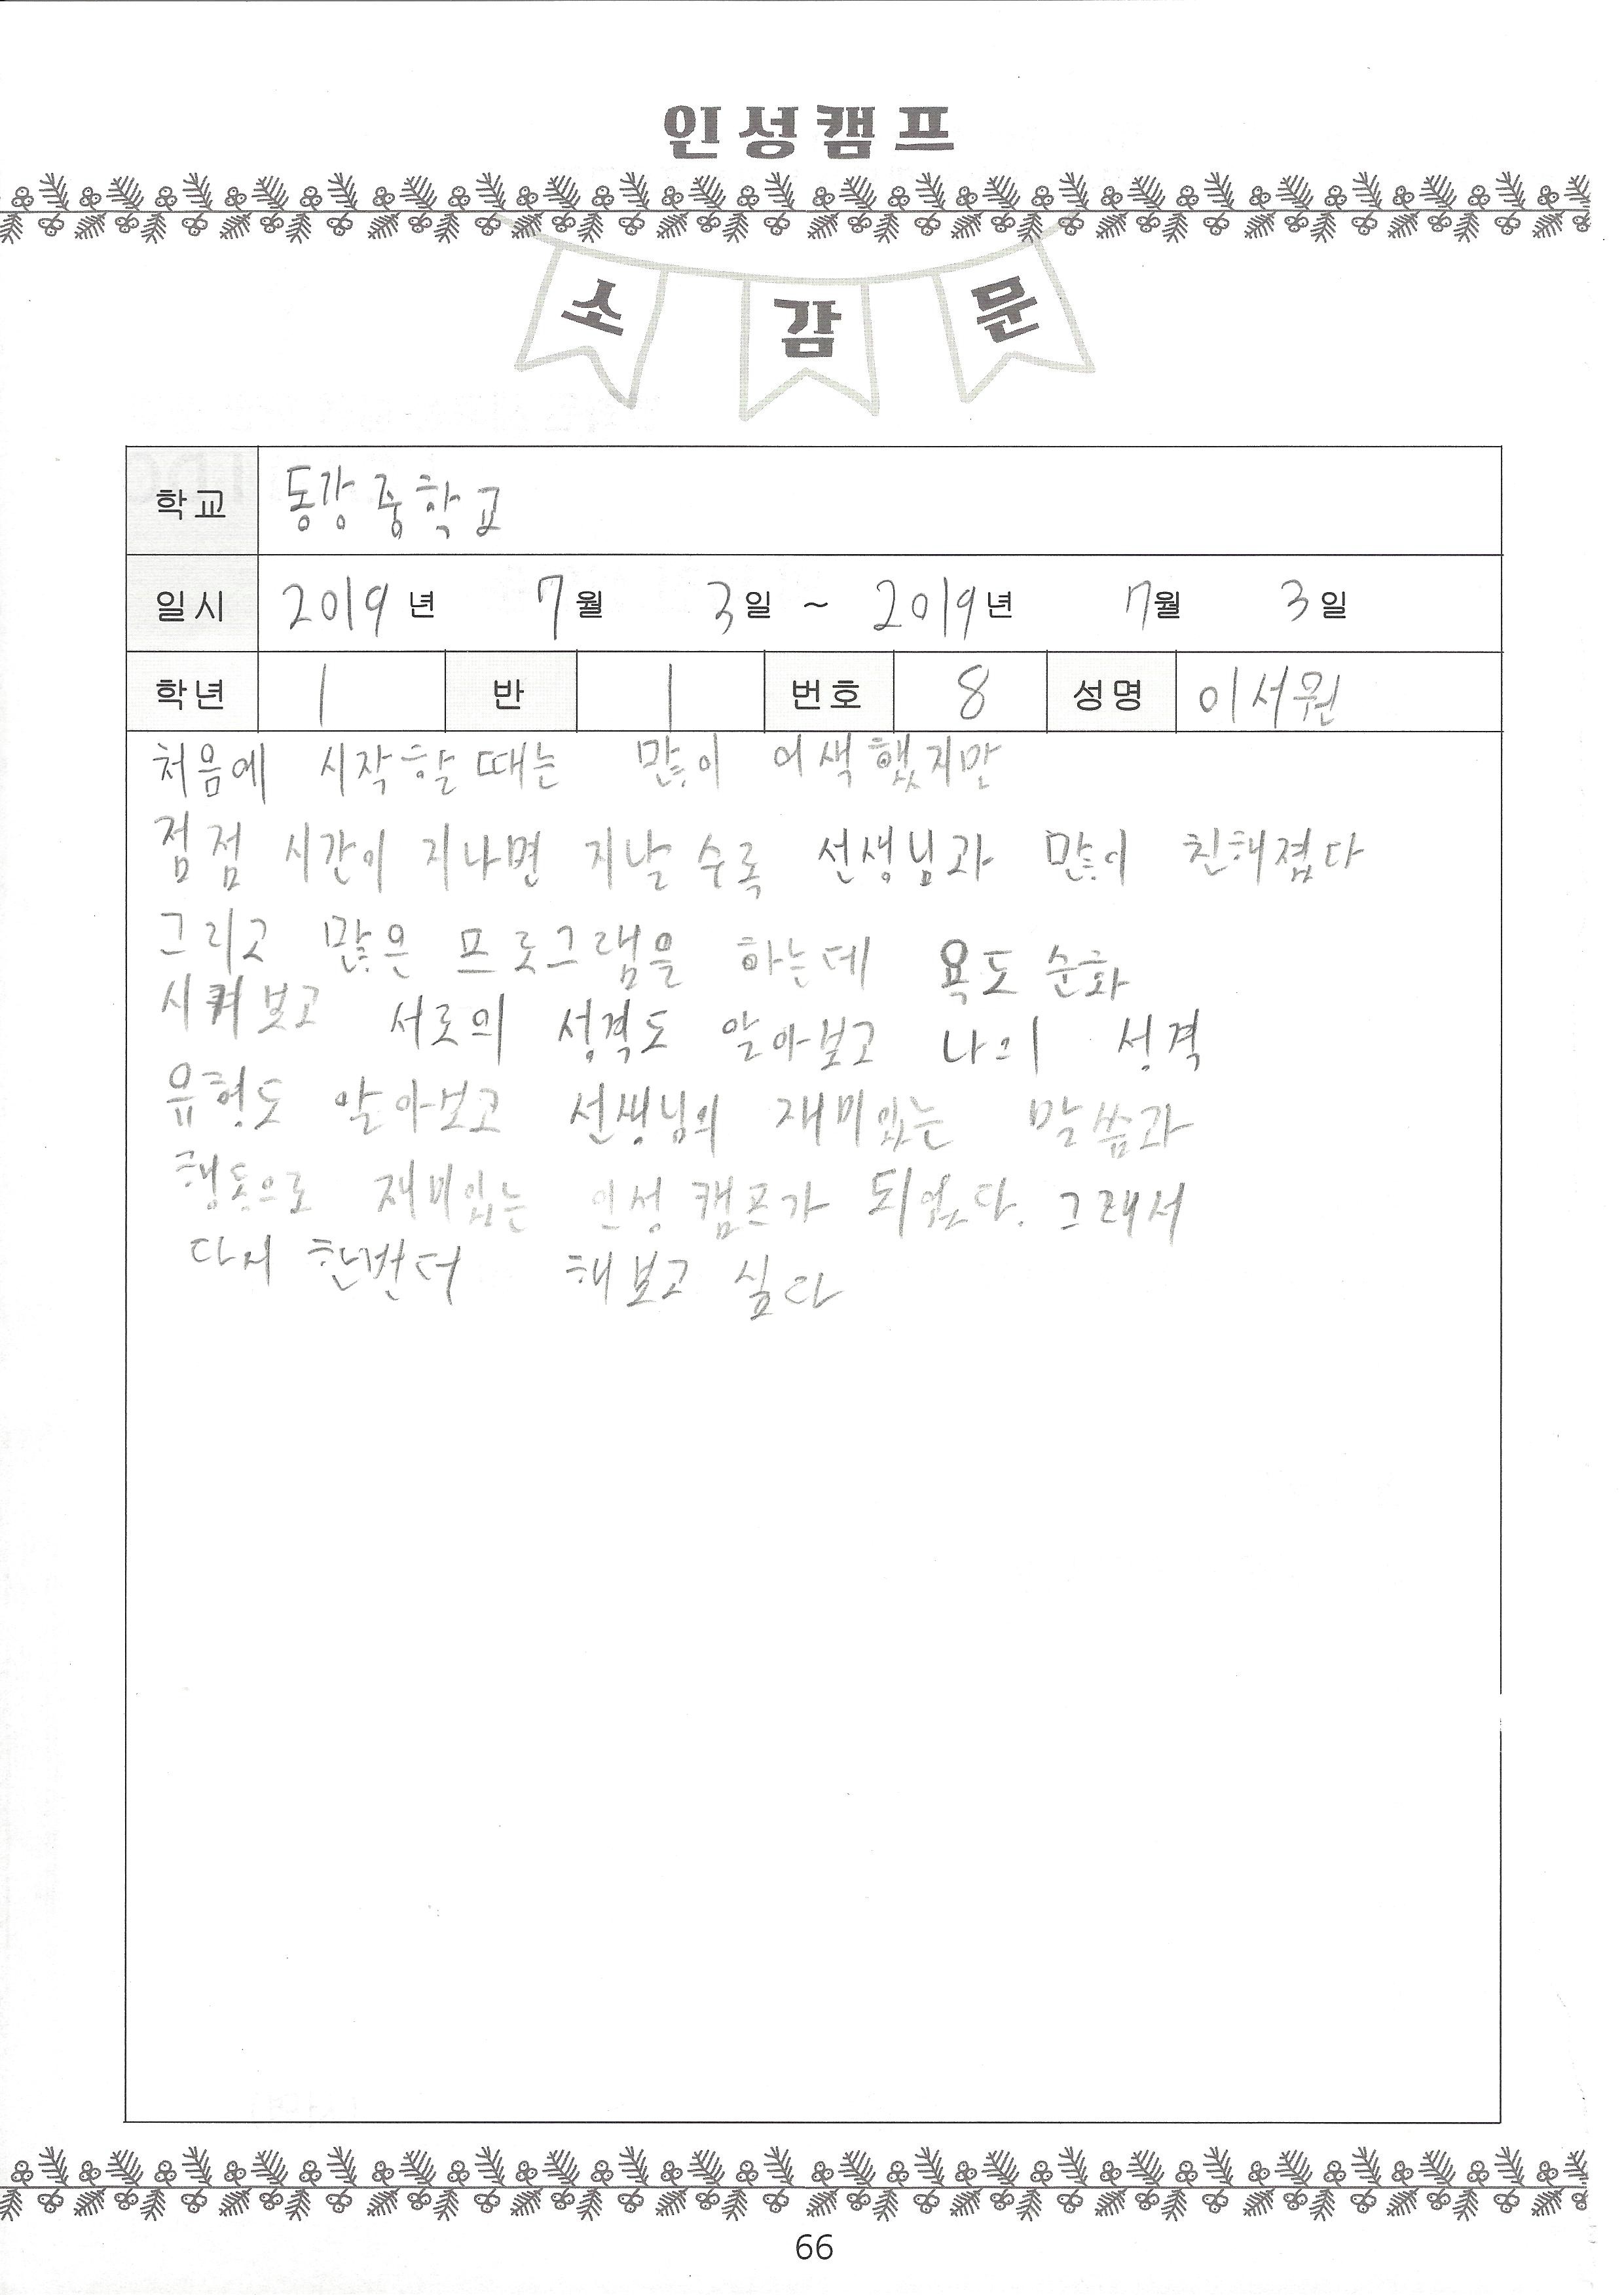 인성캠프
소감문
학교 동강중학교
일시 2019년 7월 3일 ~ 2019년 7월 3일
학년 1 반 1 번호 8 성명 이서원
처음에 시작할때는 많이 어색했지만
점점 시간이 지나면 지날수록 선생님과 많이 친해졌다
그리고 많은 프로그램을 하는데 욕도 순화
시켜보고 서로의 성격도 알아보고 나의 성격
유형도 알아보고 선생님의 재미있는 말씀과
행동으로 재미있는 인성캠프가 되었다. 그래서
다시 한번더 해보고 싶다
66